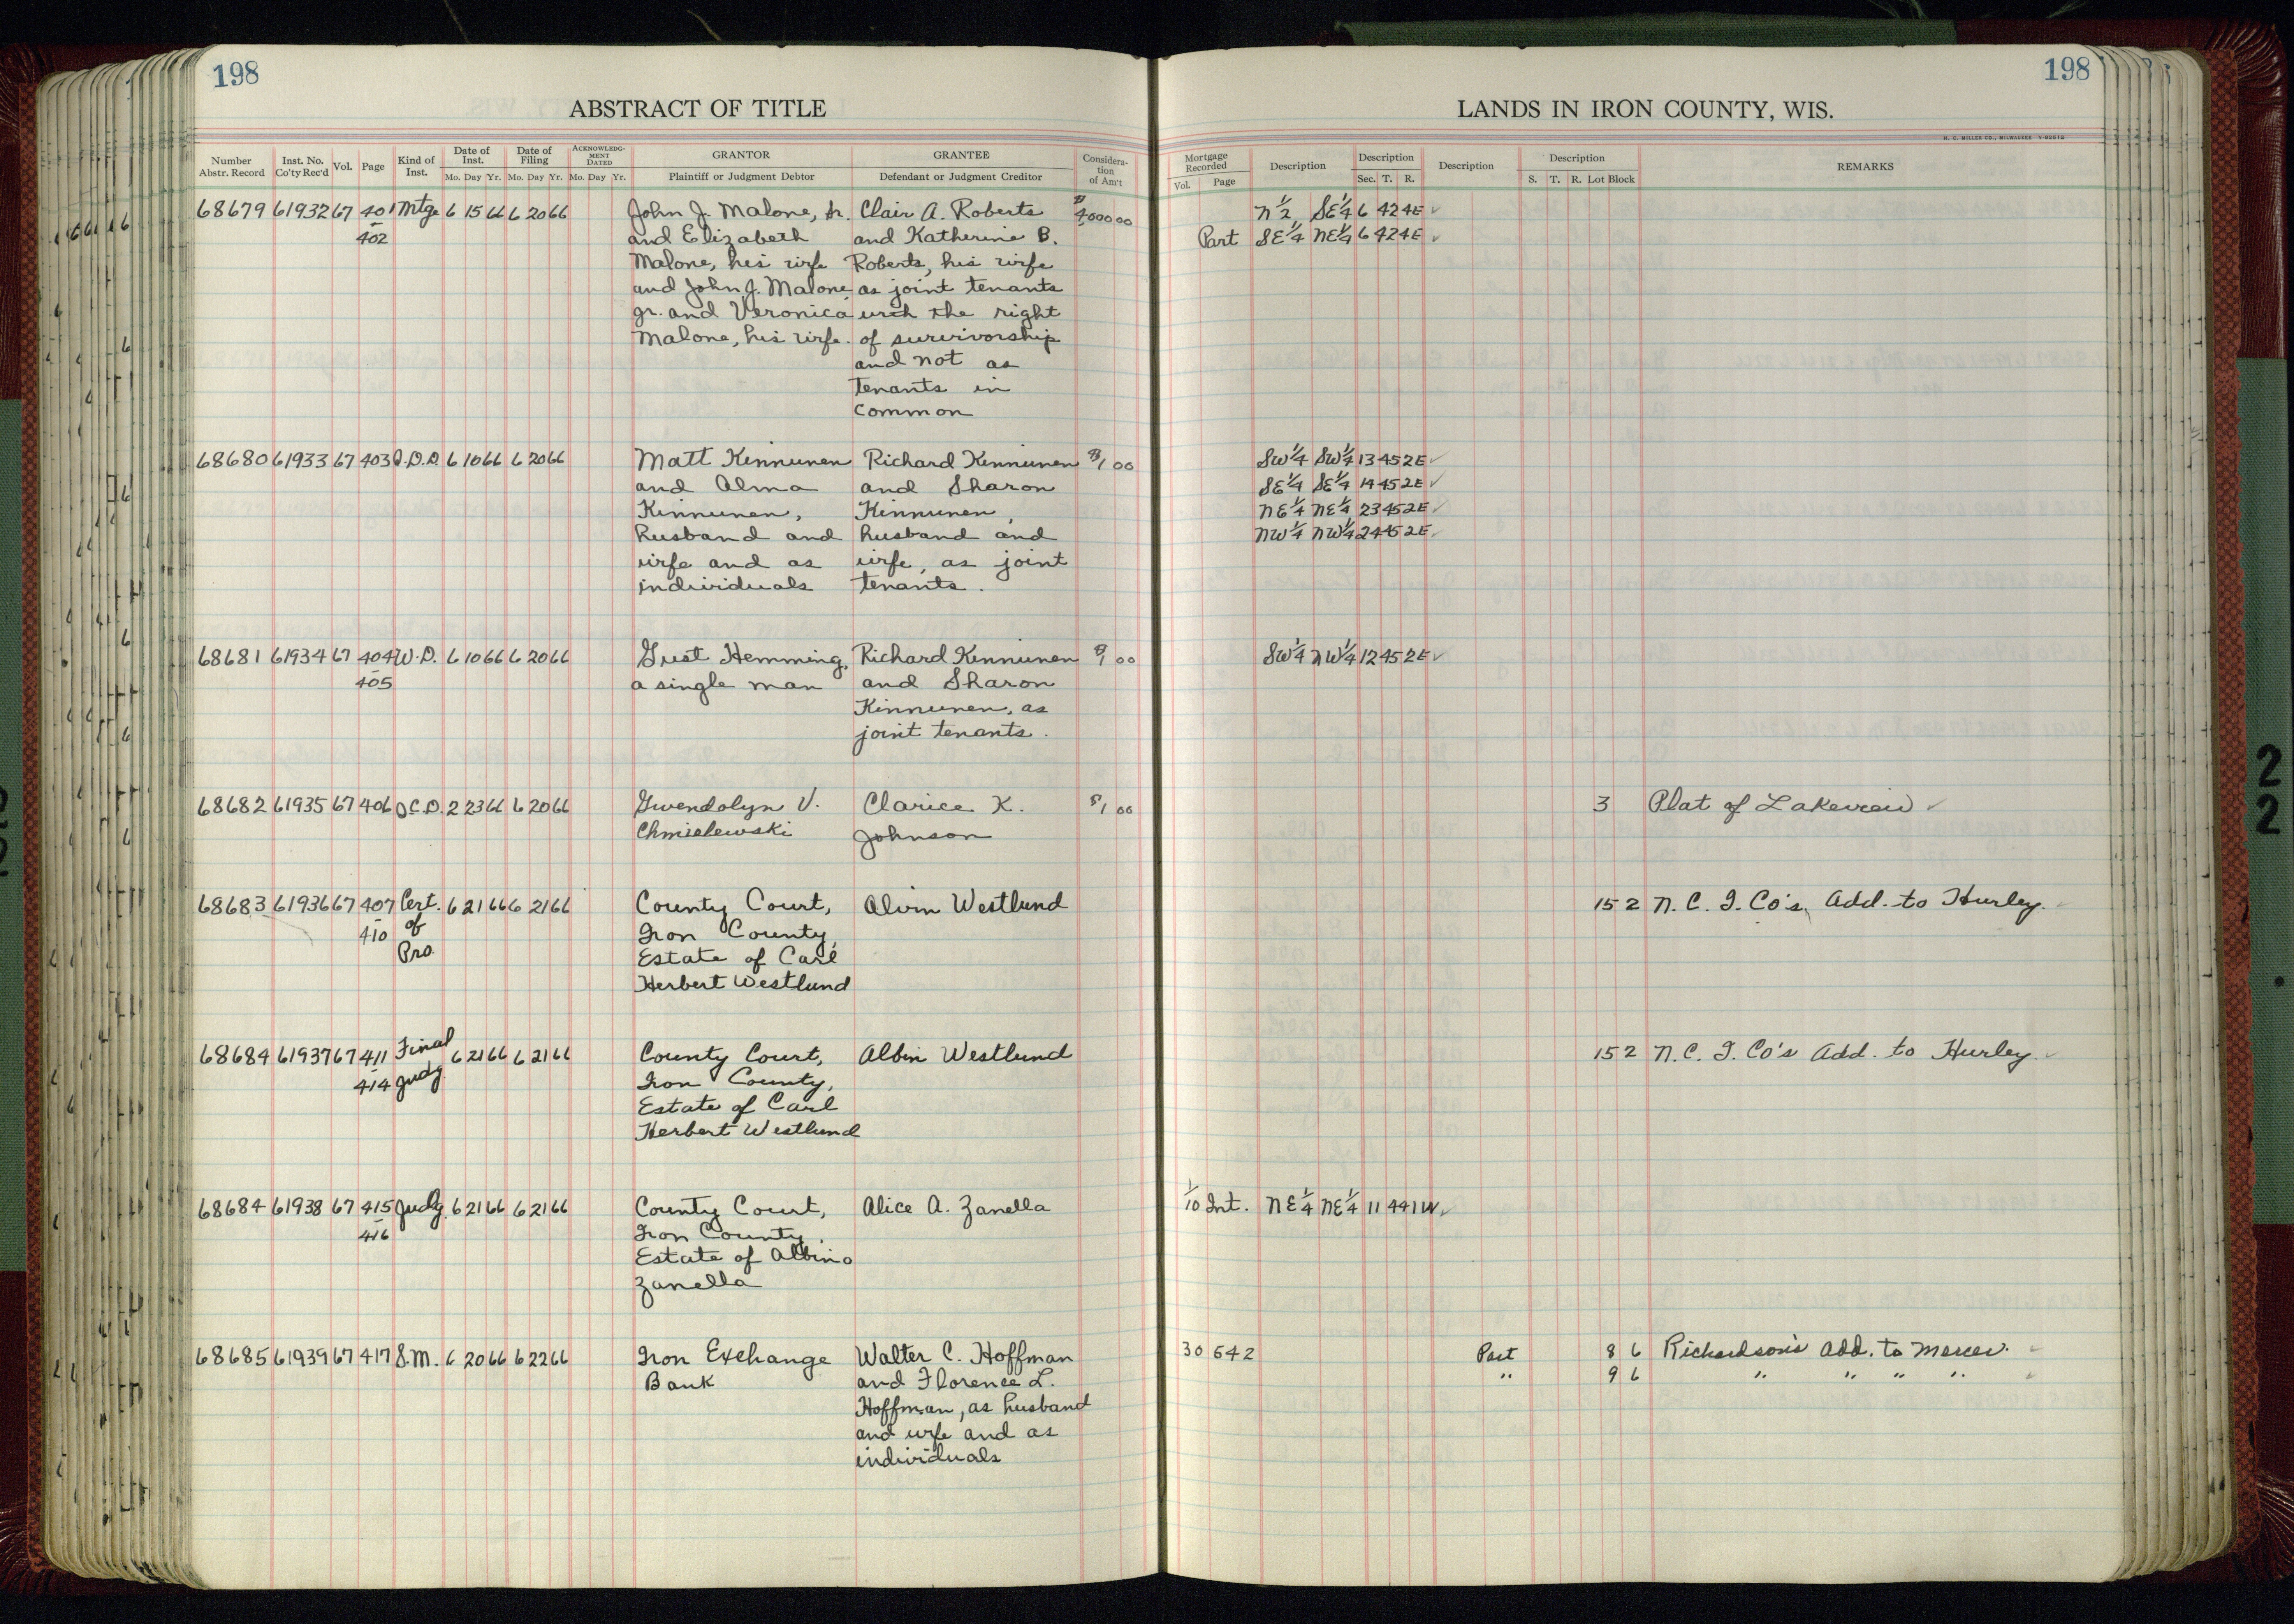 198
198
ABSTRACT OF TITLE
LANDS IN IRON COUNTY, WIS.
H. C. MILLER CO., MILWAUKEE
Number Abstr. Record Inst. No. Co'ty Rec'd Vol. Page Kind of Inst. Date of Inst. Mo. Day Yr. Date of Filing Mo. Day Yr. ACKNOWLEDGMENT DATED Mo. Day Yr. GRANTOR Plaintiff or Judgment Debtor GRANTEE Defendant or Judgment Creditor Consideration of Am't
Mortgage Recorded Vol. Page Description Description Sec. T. R. Description Description S. T. R. Lot Block REMARKS
68679 61932 67 401 Mtge 6 15 66 6 20 66 John J. Malone, Sr. Clair A. Roberts $4,000 00 N 1/2 SE 1/4 6 42 4E ✓
402 and Elizabeth and Katherine B. Part SE 1/4 NE 1/4 6 42 4E ✓
Malone, his wife Roberts, his wife
and John J. Malone, as joint tenants
Jr. and Veronica with the right
Malone, his wife. of survivorship
and not as
tenants in
common
68680 61933 67 403 Q.D.D. 6 10 66 6 20 66 Matt Kinnunen Richard Kinnunen $1 00 SW 1/4 SW 1/4 13 45 2E ✓
and Alma and Sharon SE 1/4 SE 1/4 14 45 2E ✓
Kinnunen, Kinnunen, NE 1/4 NE 1/4 23 45 2E ✓
husband and husband and NW 1/4 NW 1/4 24 45 2E ✓
wife and as wife, as joint
individuals tenants.
68681 61934 67 404 W.D. 6 10 66 6 20 66 Gust Hemming, Richard Kinnunen $1 00 SW 1/4 NW 1/4 12 45 2E ✓
405 a single man and Sharon
Kinnunen, as
joint tenants.
68682 61935 67 406 Q.C.D. 2 23 66 6 20 66 Gwendolyn V. Clarice K. $1 00 3 Plat of Lakeview ✓
Chmielewski Johnson
68683 61936 67 407 Cert. 6 21 66 6 21 66 County Court, Alvin Westlund 15 2 N. C. I. Co's. Add. to Hurley. ✓
410 of Iron County,
Pro. Estate of Carl
Herbert Westlund
68684 61937 67 411 Final 6 21 66 6 21 66 County Court, Albin Westlund 15 2 N. C. I. Co's Add. to Hurley. ✓
414 Judg. Iron County,
Estate of Carl
Herbert Westlund
68684 61938 67 415 Judg. 6 21 66 6 21 66 County Court, Alice A. Zanella 1/10 Int. NE 1/4 NE 1/4 11 44 1W ✓
416 Iron County,
Estate of Albino
Zanella
68685 61939 67 417 S.M. 6 20 66 6 22 66 Iron Exchange Walter C. Hoffman 30 542 Part 8 6 Richardson's Add. to Mercer. ✓
Bank and Florence L. " 9 6 " " " " ✓
Hoffman, as husband
and wife and as
individuals
2
2